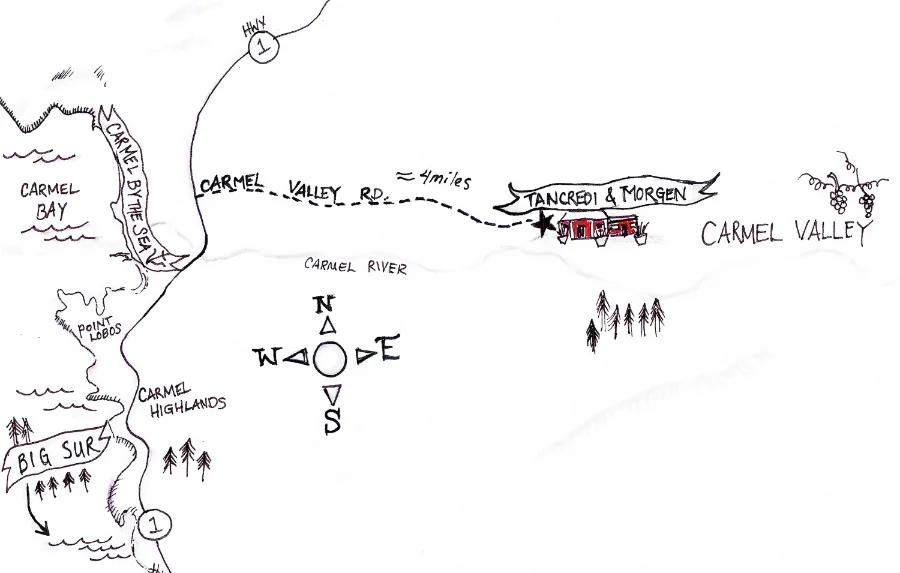 HWY
1
CARMEL BY THE SEA
CARMEL VALLEY RD. ≈ 4 miles
CARMEL
BAY
TANCREDI & MORGEN
CARMEL VALLEY
CARMEL RIVER
N
W E
S
POINT
LOBOS
CARMEL
HIGHLANDS
BIG SUR
1